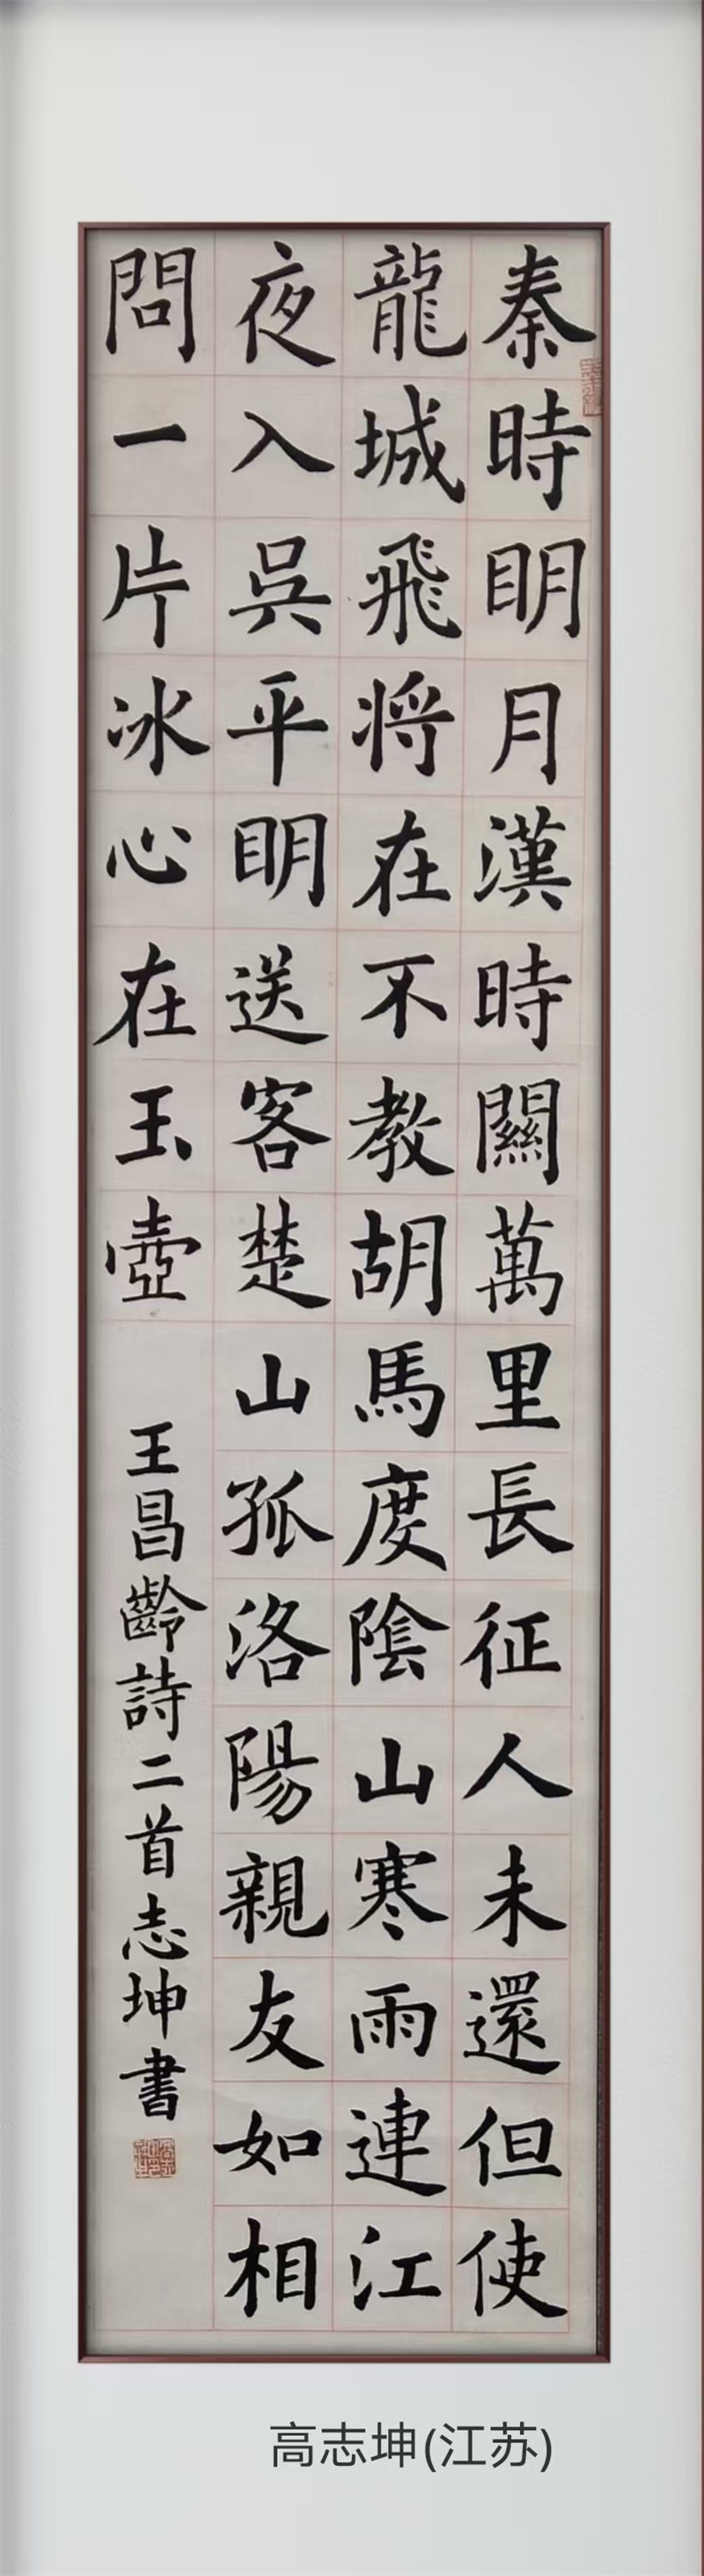 秦時明月漢時關萬里長征人未還但使
龍城飛將在不教胡馬度陰山寒雨連江
夜入吳平明送客楚山孤洛陽親友如相
問一片冰心在玉壺
王昌齡詩二首志坤書
高志坤(江苏)